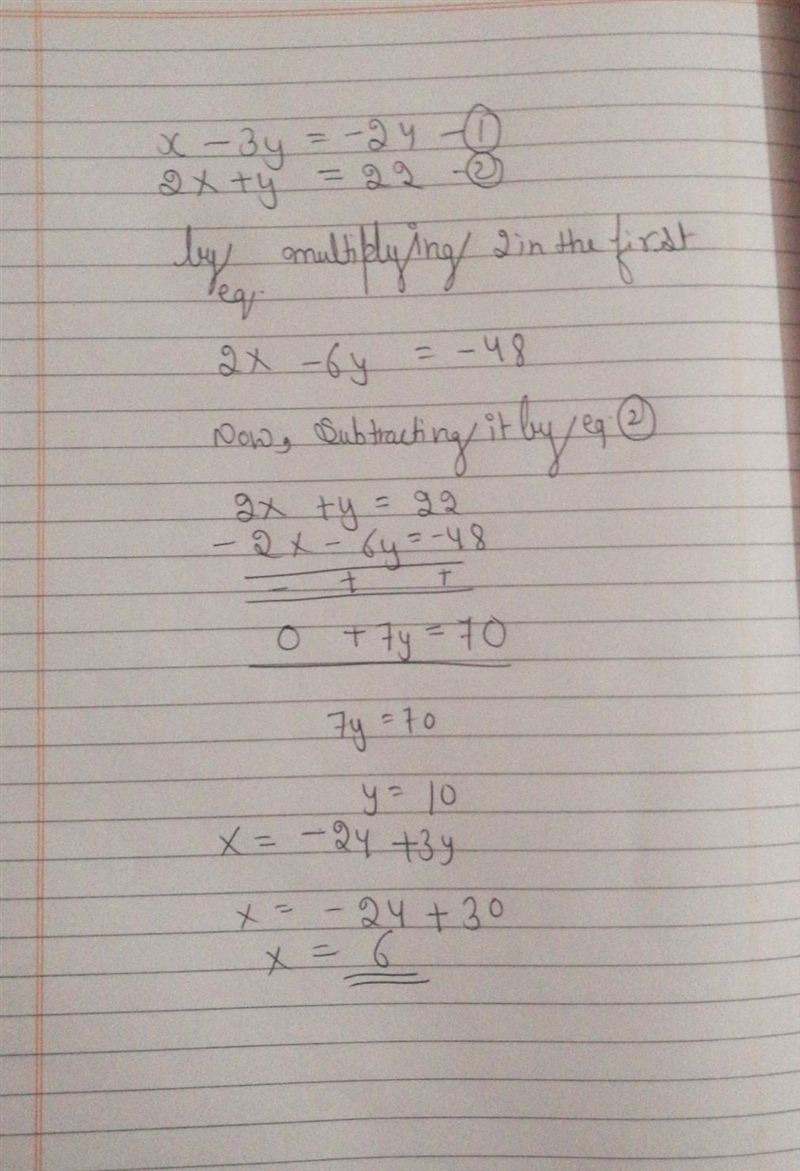 x - 3y = -24 - ①
2x + y = 22 - ②
by multiplying 2 in the first
eq.
2x - 6y = -48
Now, Subtracting it by eq ②
2x + y = 22
- 2x - 6y = -48
- + +
0 + 7y = 70
7y = 70
y = 10
x = -24 + 3y
x = -24 + 30
x = 6